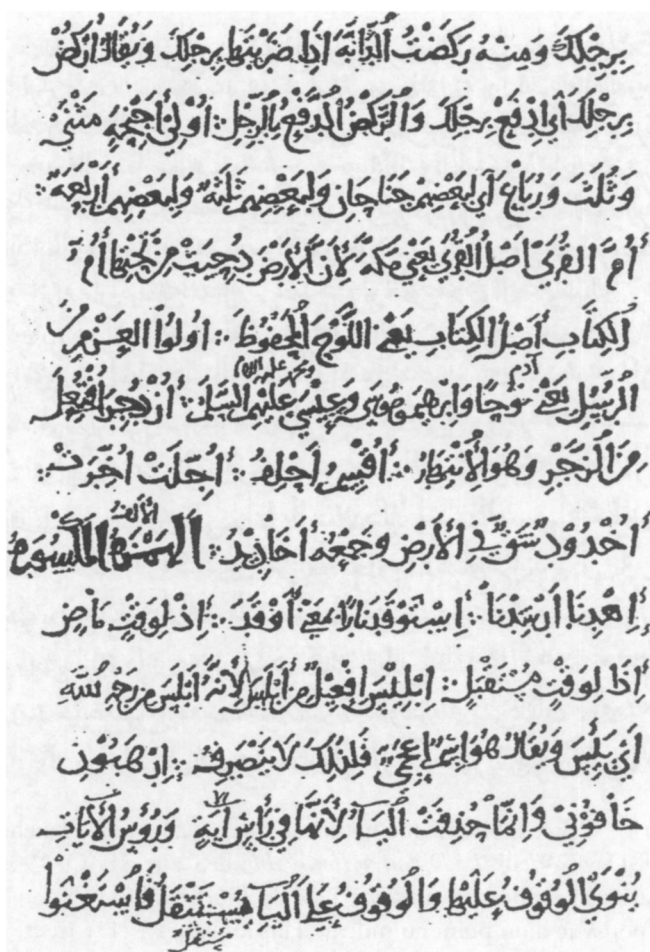 بِرِجْلِكَ وَمِنْهُ رَكَضْتُ الدَّابَّةَ اِذَا ضَرَبْتَهَا بِرِجْلِكَ وَيُقَالُ اُرْكُضْ
بِرِجْلِكَ اَيِ اِدْفَعْ بِرِجْلِكَ وَالرَّكْضُ الدَّفْعُ بِالرِّجْلِ ∴ اُوْلِي اَجْنِحَةٍ مَثْنَى
وَثُلَثَ وَرُبَاعَ اَيْ لِبَعْضِهِمْ جَنَاحَانِ وَلِبَعْضِهِمْ ثَلَثَةٌ وَلِبَعْضِهِمْ اَرْبَعَةٌ ∴
أُمَّ القُرَى اَصْلُ القُرَى يَعْنِي مَكَّةَ لِاَنَّ الْاَرْضَ دُحِيَتْ مِنْ تَحْتِهَا أُمُّ
الْكِتَابِ اَصْلُ الْكِتَابِ يَعْنِي اللَّوْحَ الْمَحْفُوظَ ∴ اُولُوا الْعَزْمِ مِنَ
آدم
الرُّسُلِ يَعْنِي نُوْحًا وَاِبْرٰهِيمَ وَمُوسٰى وَعِيْسٰى عَلَيْهِمُ السَّلَمُ ∴ اُزْدُجِرَ اُفْتُعِلَ
مِنَ الزَّجْرِ وَهُوَ الْاِنْتِهَارُ ∴ اُجِّلَتْ اُخِّرَتْ ∴
أُخْدُوْدٌ شَقٌّ فِي الْاَرْضِ وَجَمْعُهُ أَخَادِيْدُ ∴ الْهَمْزَة الْمَكْسُوْرَة
اِهْدِنَا اَرْشِدْنَا ∴ اِسْتَوْقَدَ نَارًا بِمَعْنَى اَوْقَدَ ∴ اِذْ لِوَقْتٍ مَاضٍ
اِذَا لِوَقْتٍ مُسْتَقْبِلٍ ∴ اِبْلِيْسَ اِفْعِيْلٌ مِنْ اَبْلَسَ لِاَنَّهُ اَبْلَسَ مِنْ رَحْمَةِ اللّٰهِ
اَيْ يَئِسَ وَيُقَالُ هُوَ اِسْمٌ اَعْجَمِيٌّ فَلِذٰلِكَ لَا يَنْصَرِفُ ∴ اِرْهَبُوْنِ
خَافُوْنِي وَاِنَّمَا حُذِفَتْ الْيَاءُ لِاَنَّهَا فِي رَأْسِ اٰيَةٍ وَرُؤُسُ الْاٰيَاتِ
يُنْوَى الْوُقُوْفُ عَلَيْهَا وَالْوُقُوْفُ عَلَى الْيَاءِ يُسْتَثْقَلُ فَاسْتَغْنَوْا